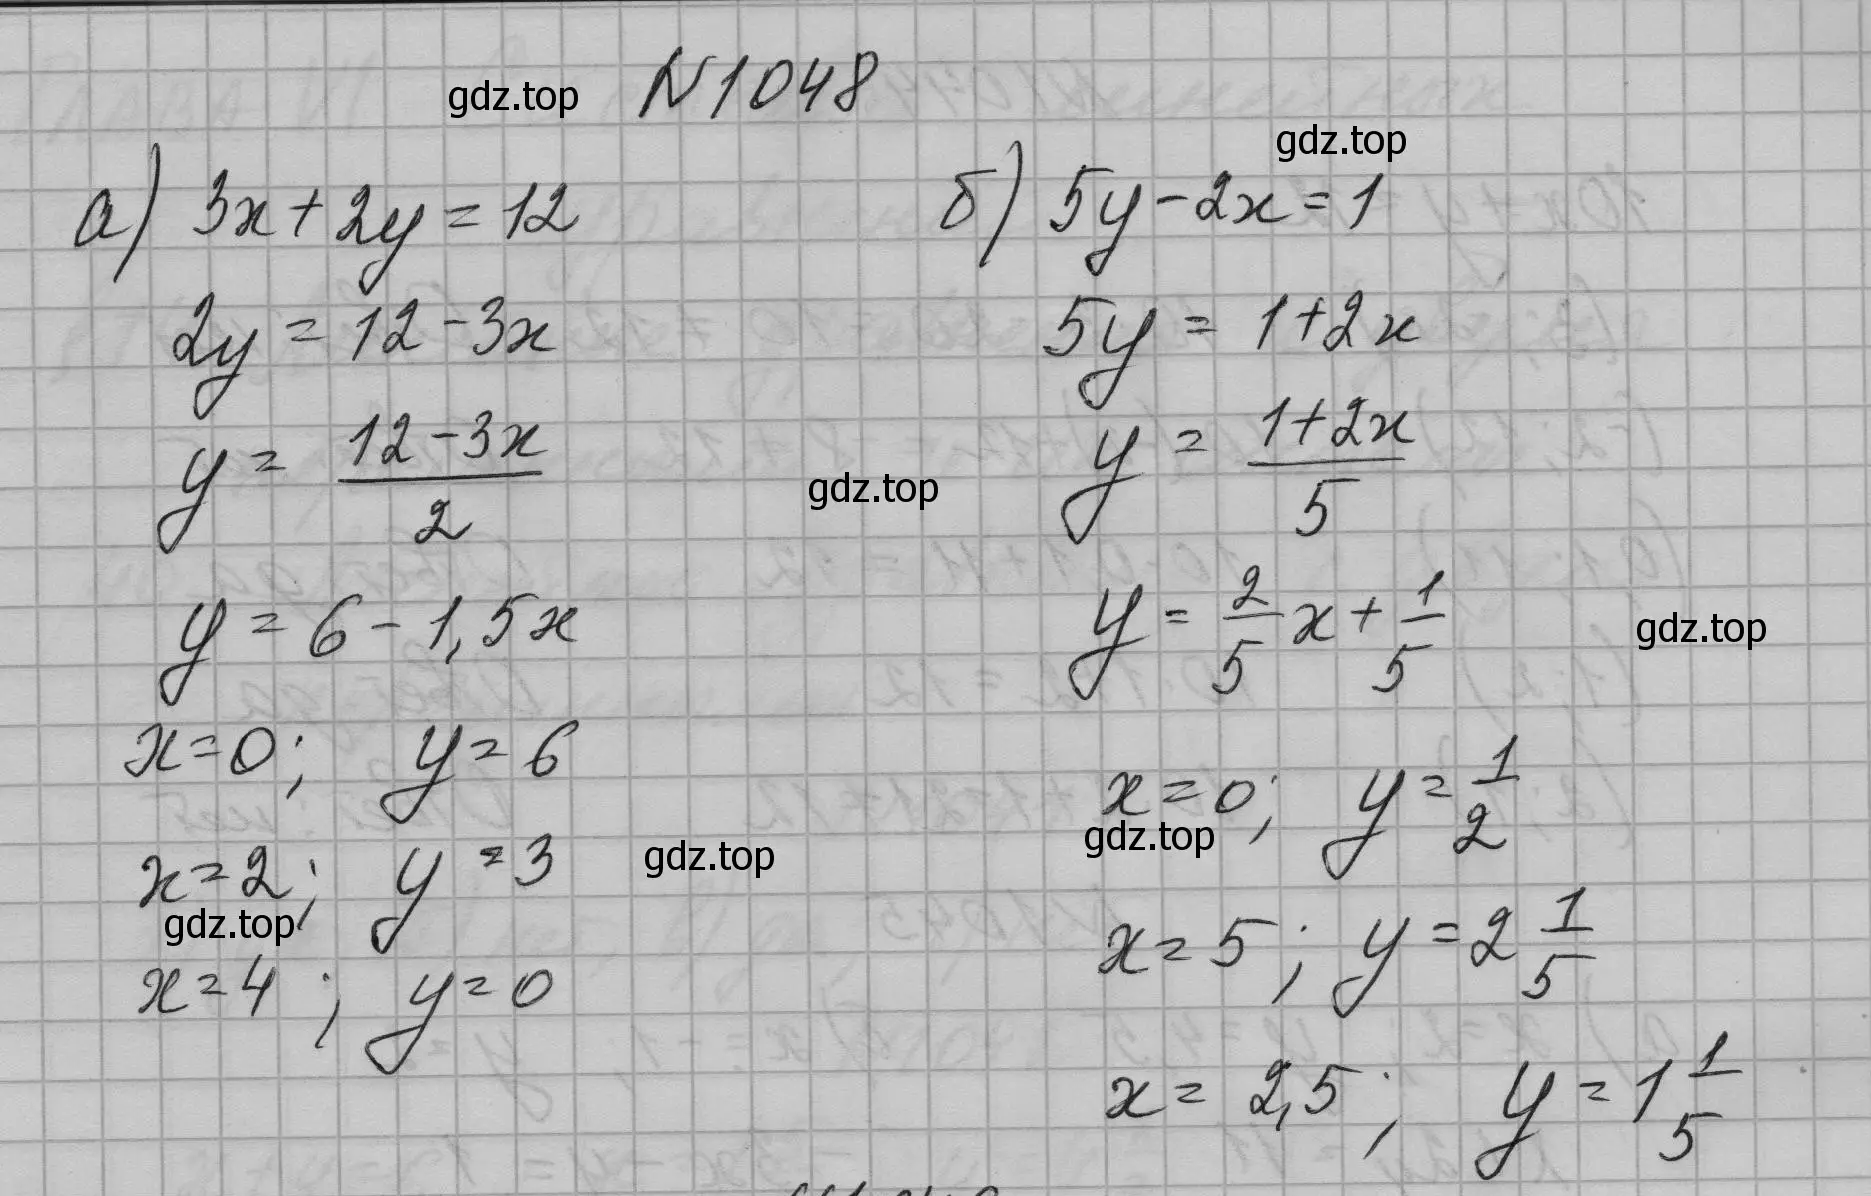 N 1048
gdz.top
gdz.top
а) 3x + 2y = 12
2y = 12 - 3x
y = (12 - 3x)/2
y = 6 - 1,5x
x = 0; y = 6
x = 2; y = 3
gdz.top
gdz.top
x = 4; y = 0
gdz.top
б) 5y - 2x = 1
5y = 1 + 2x
y = (1 + 2x)/5
y = 2/5 x + 1/5
gdz.top
x = 0; y = 1/2
gdz.top
x = 5; y = 2 1/5
x = 2,5; y = 1 1/5